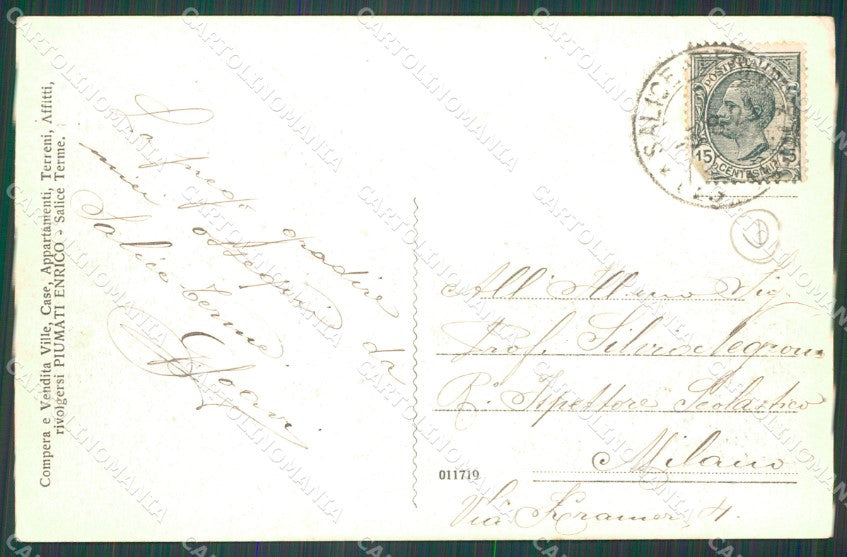 Compera e Vendita Ville, Case, Appartamenti, Terreni, Affitti,
rivolgersi PIUMATI ENRICO - Salice Terme.
La prego gradire da
miei ossequi
Salice Terme
SALICE
POSTE ITALIANE
15 CENTESIMI 15
All' Ill.mo Sig.
Prof. Silvio Negroni
R. Ispettore Scolastico
Milano
Via Kramer, 4.
011719
CARTOLINOMANIA